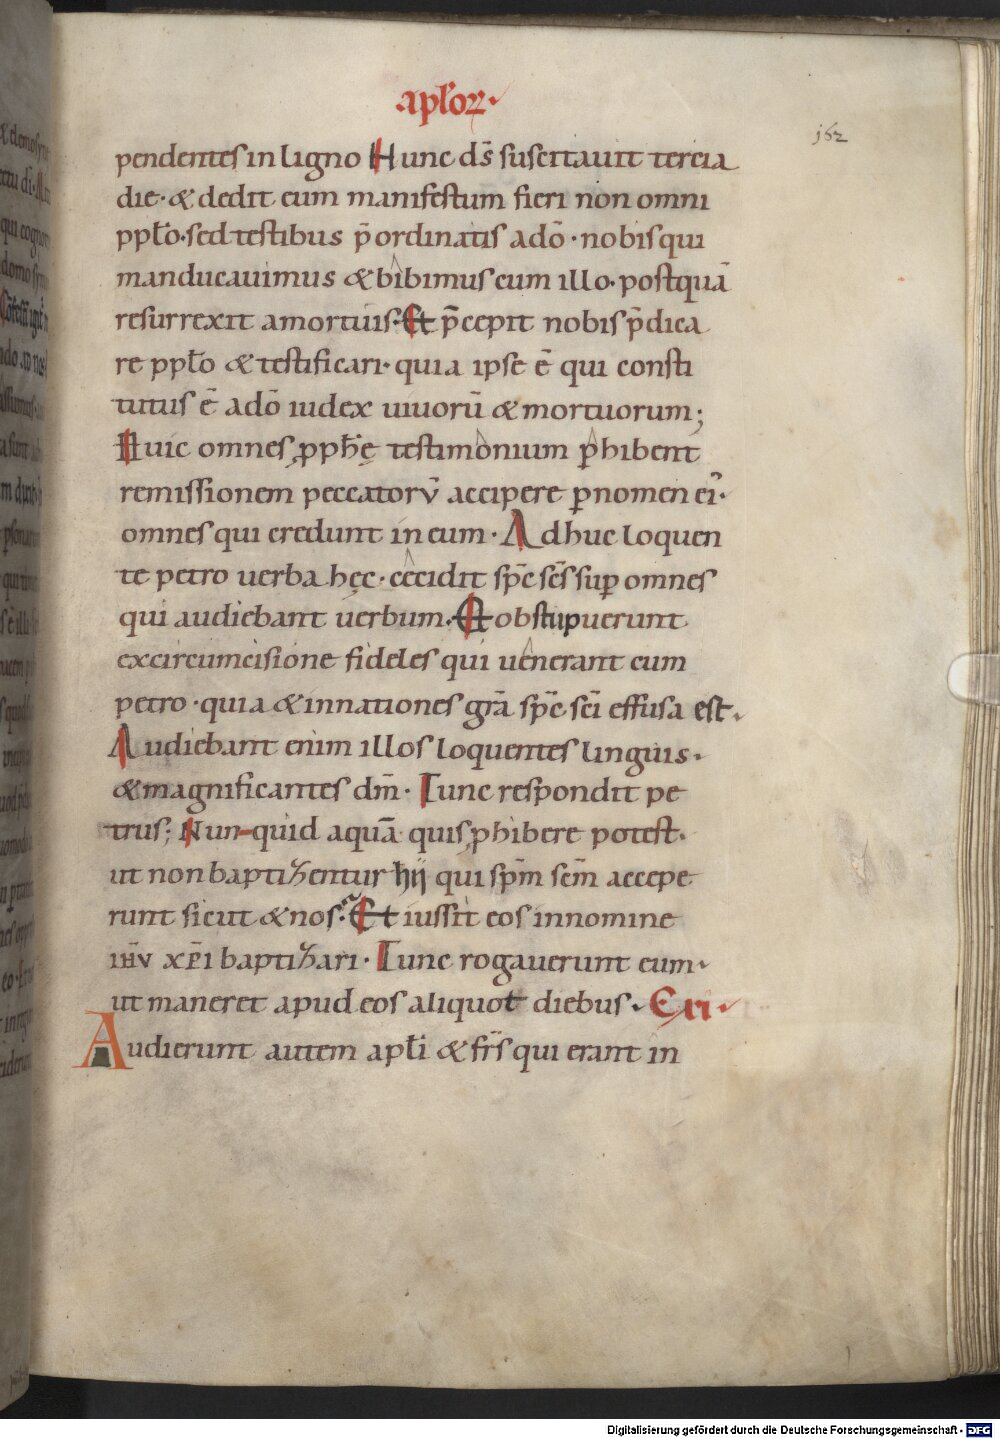 apl̄oꝝ
162
pendentes in ligno Hunc d̄s suscitauit tercia
die · & dedit eum manifestum fieri non omni
ppl̄o · sed testibus p̄ordinatis a dō · nobis qui
manducauimus & bibimus cum illo · postquā
resurrexit a mortuis · Et p̄cepit nobis p̄dica
re ppl̄o & testificari · quia ipse ē qui consti
tutus ē a dō iudex uiuorū & mortuorum ;
Huic omnes ꝓph̄ę testimonium ꝑhibent
remissionem peccatorū accipere ꝑ nomen ei᾿ ·
omnes qui credunt in eum · Adhuc loquen
te petro uerba hęc · cecidit sp̄c sc̄s suꝑ omnes
qui audiebant uerbum · Et obstupuerunt
ex circumcisione fideles qui uenerant cum
petro · quia & in nationes gr̄a sp̄c sc̄i effusa est ·
Audiebant enim illos loquentes linguis ·
& magnificantes dm̄ · Tunc respondit pe
trus ; Nun-quid aquā quis ꝓhibere potest ·
ut non baptizentur hij qui sp̄m sc̄m accepe
runt sicut & nos · Et iussit eos in nomine
ih̄v xp̄i baptizari · Tunc rogauerunt eum ·
ut maneret apud eos aliquot diebus · C xi ·
Audierunt autem apl̄i & fr̄s qui erant in
Digitalisierung gefördert durch die Deutsche Forschungsgemeinschaft - DFG